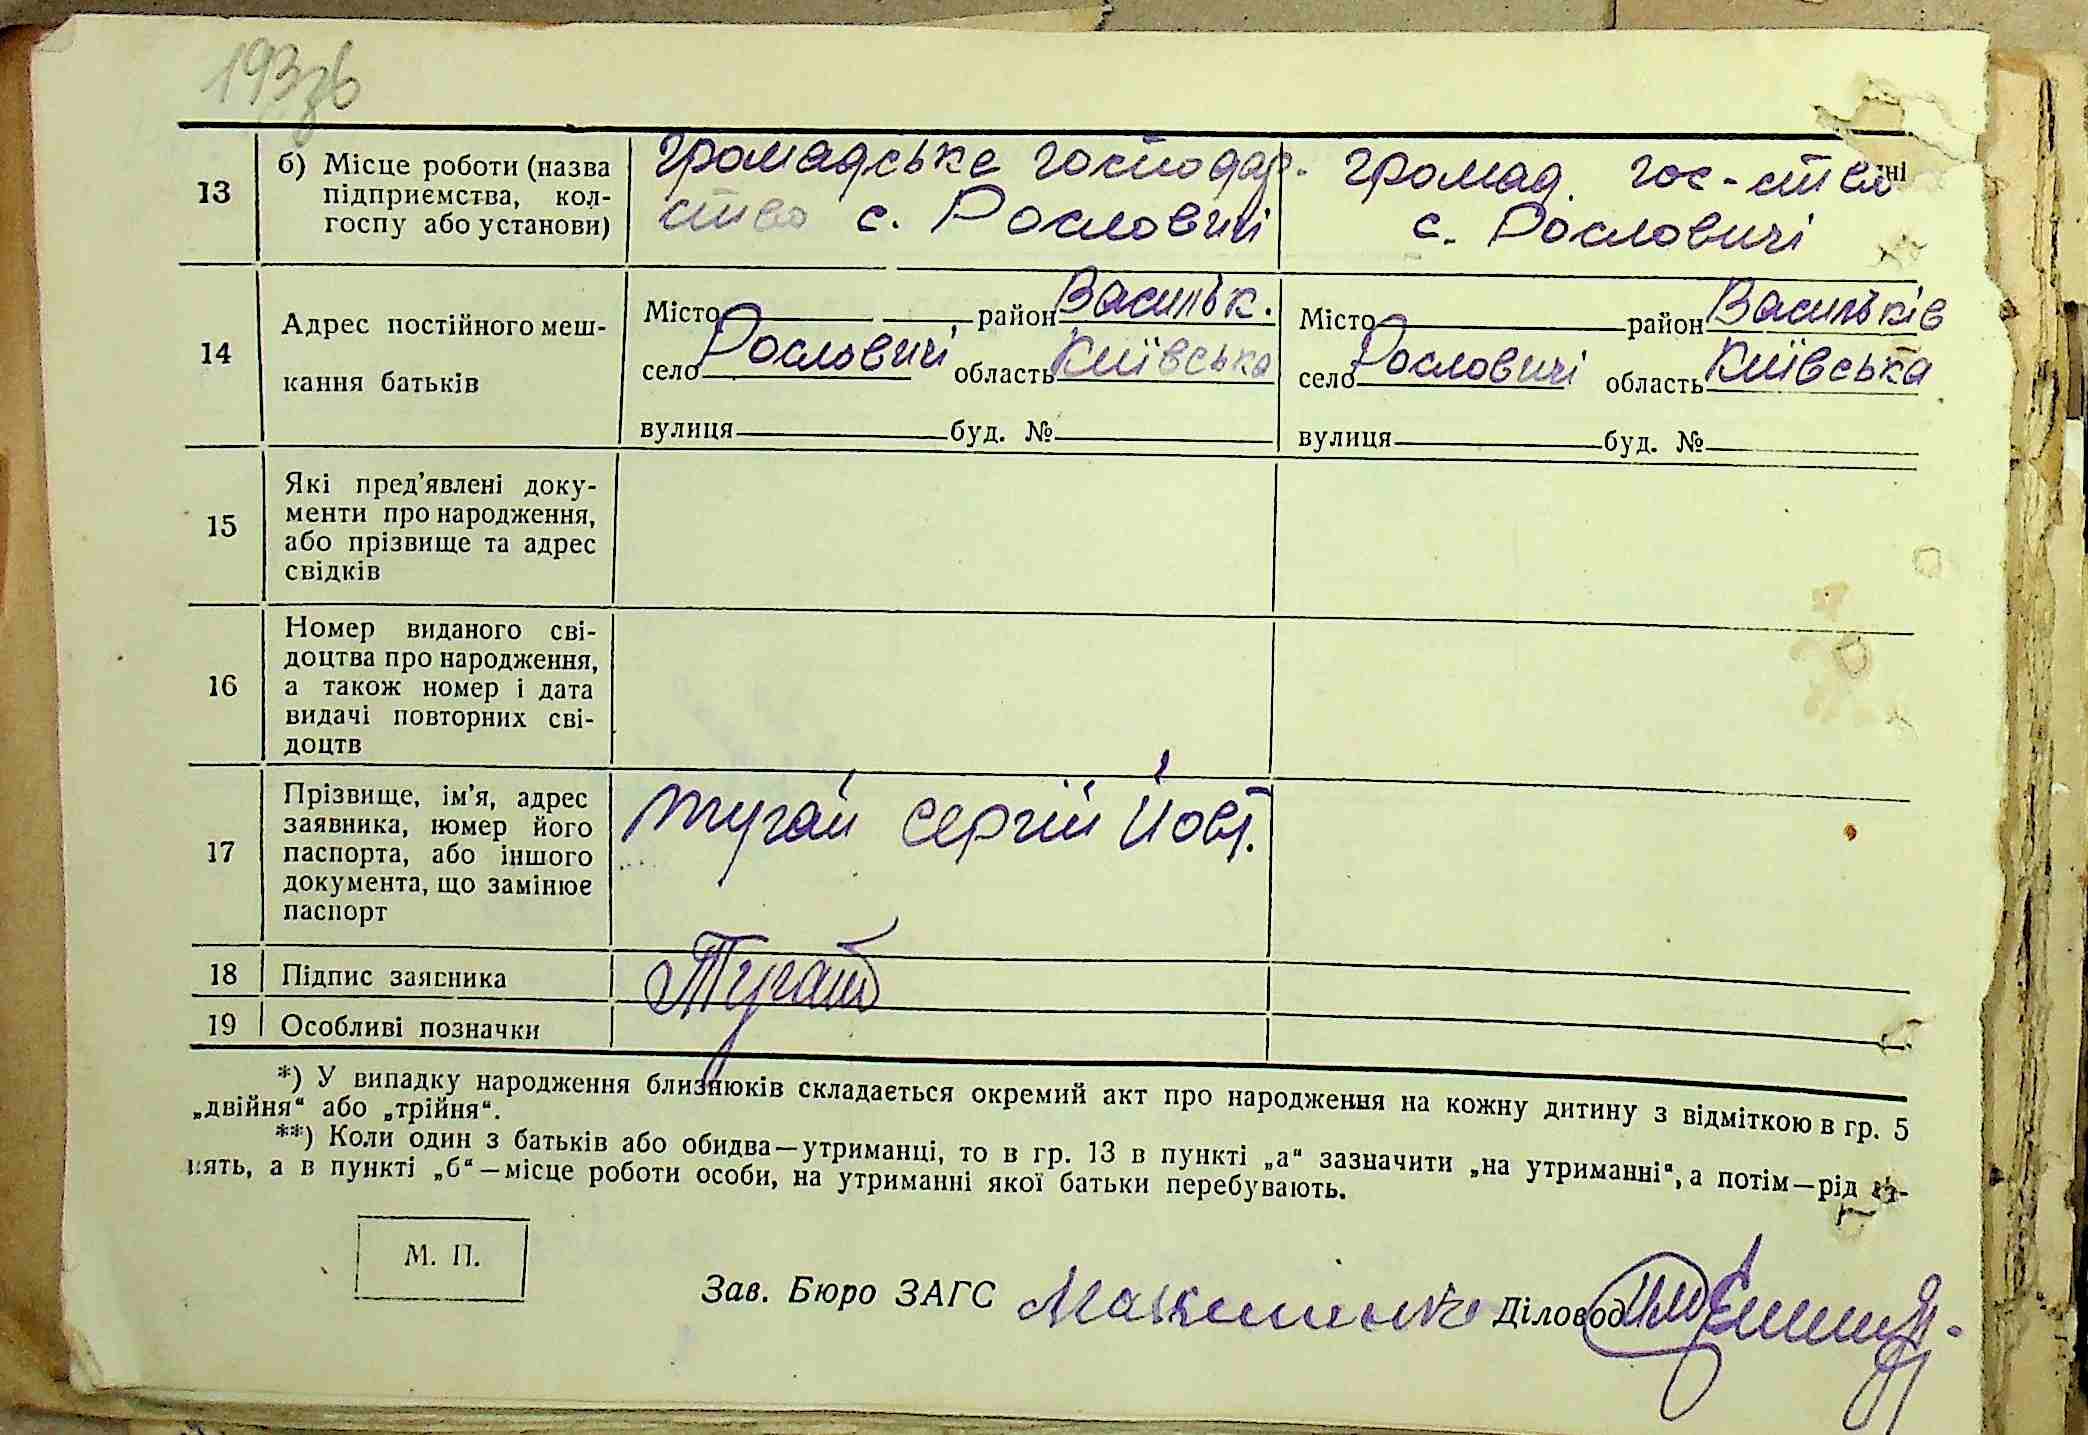 193зв
13 б) Місце роботи (назва підприємства, колгоспу або установи) громадське господар- громад. гос-ство
ство с. Рословичі с. Рословичі
14 Адрес постійного мешкання батьків
Місто район Васильк. Місто район Васильків
село Рословичі область Київська село Рословичі область Київська
вулиця буд. № вулиця буд. №
15 Які пред'явлені доку-
менти про народження,
або прізвище та адрес
свідків
16 Номер виданого сві-
доцтва про народження,
а також номер і дата
видачі повторних сві-
доцтв
17 Прізвище, ім'я, адрес
заявника, номер його
паспорта, або іншого
документа, що замінює
паспорт
Тугай Сергій Йовт.
18 Підпис заявника Тугай
19 Особливі позначки
*) У випадку народження близнюків складається окремий акт про народження на кожну дитину з відміткою в гр. 5
„двійня“ або „трійня“.
**) Коли один з батьків або обидва—утриманці, то в гр. 13 в пункті „а“ зазначити „на утриманні“, а потім—рід за-
нять, а в пункті „б“—місце роботи особи, на утриманні якої батьки перебувають.
М. П.
Зав. Бюро ЗАГС Діловод